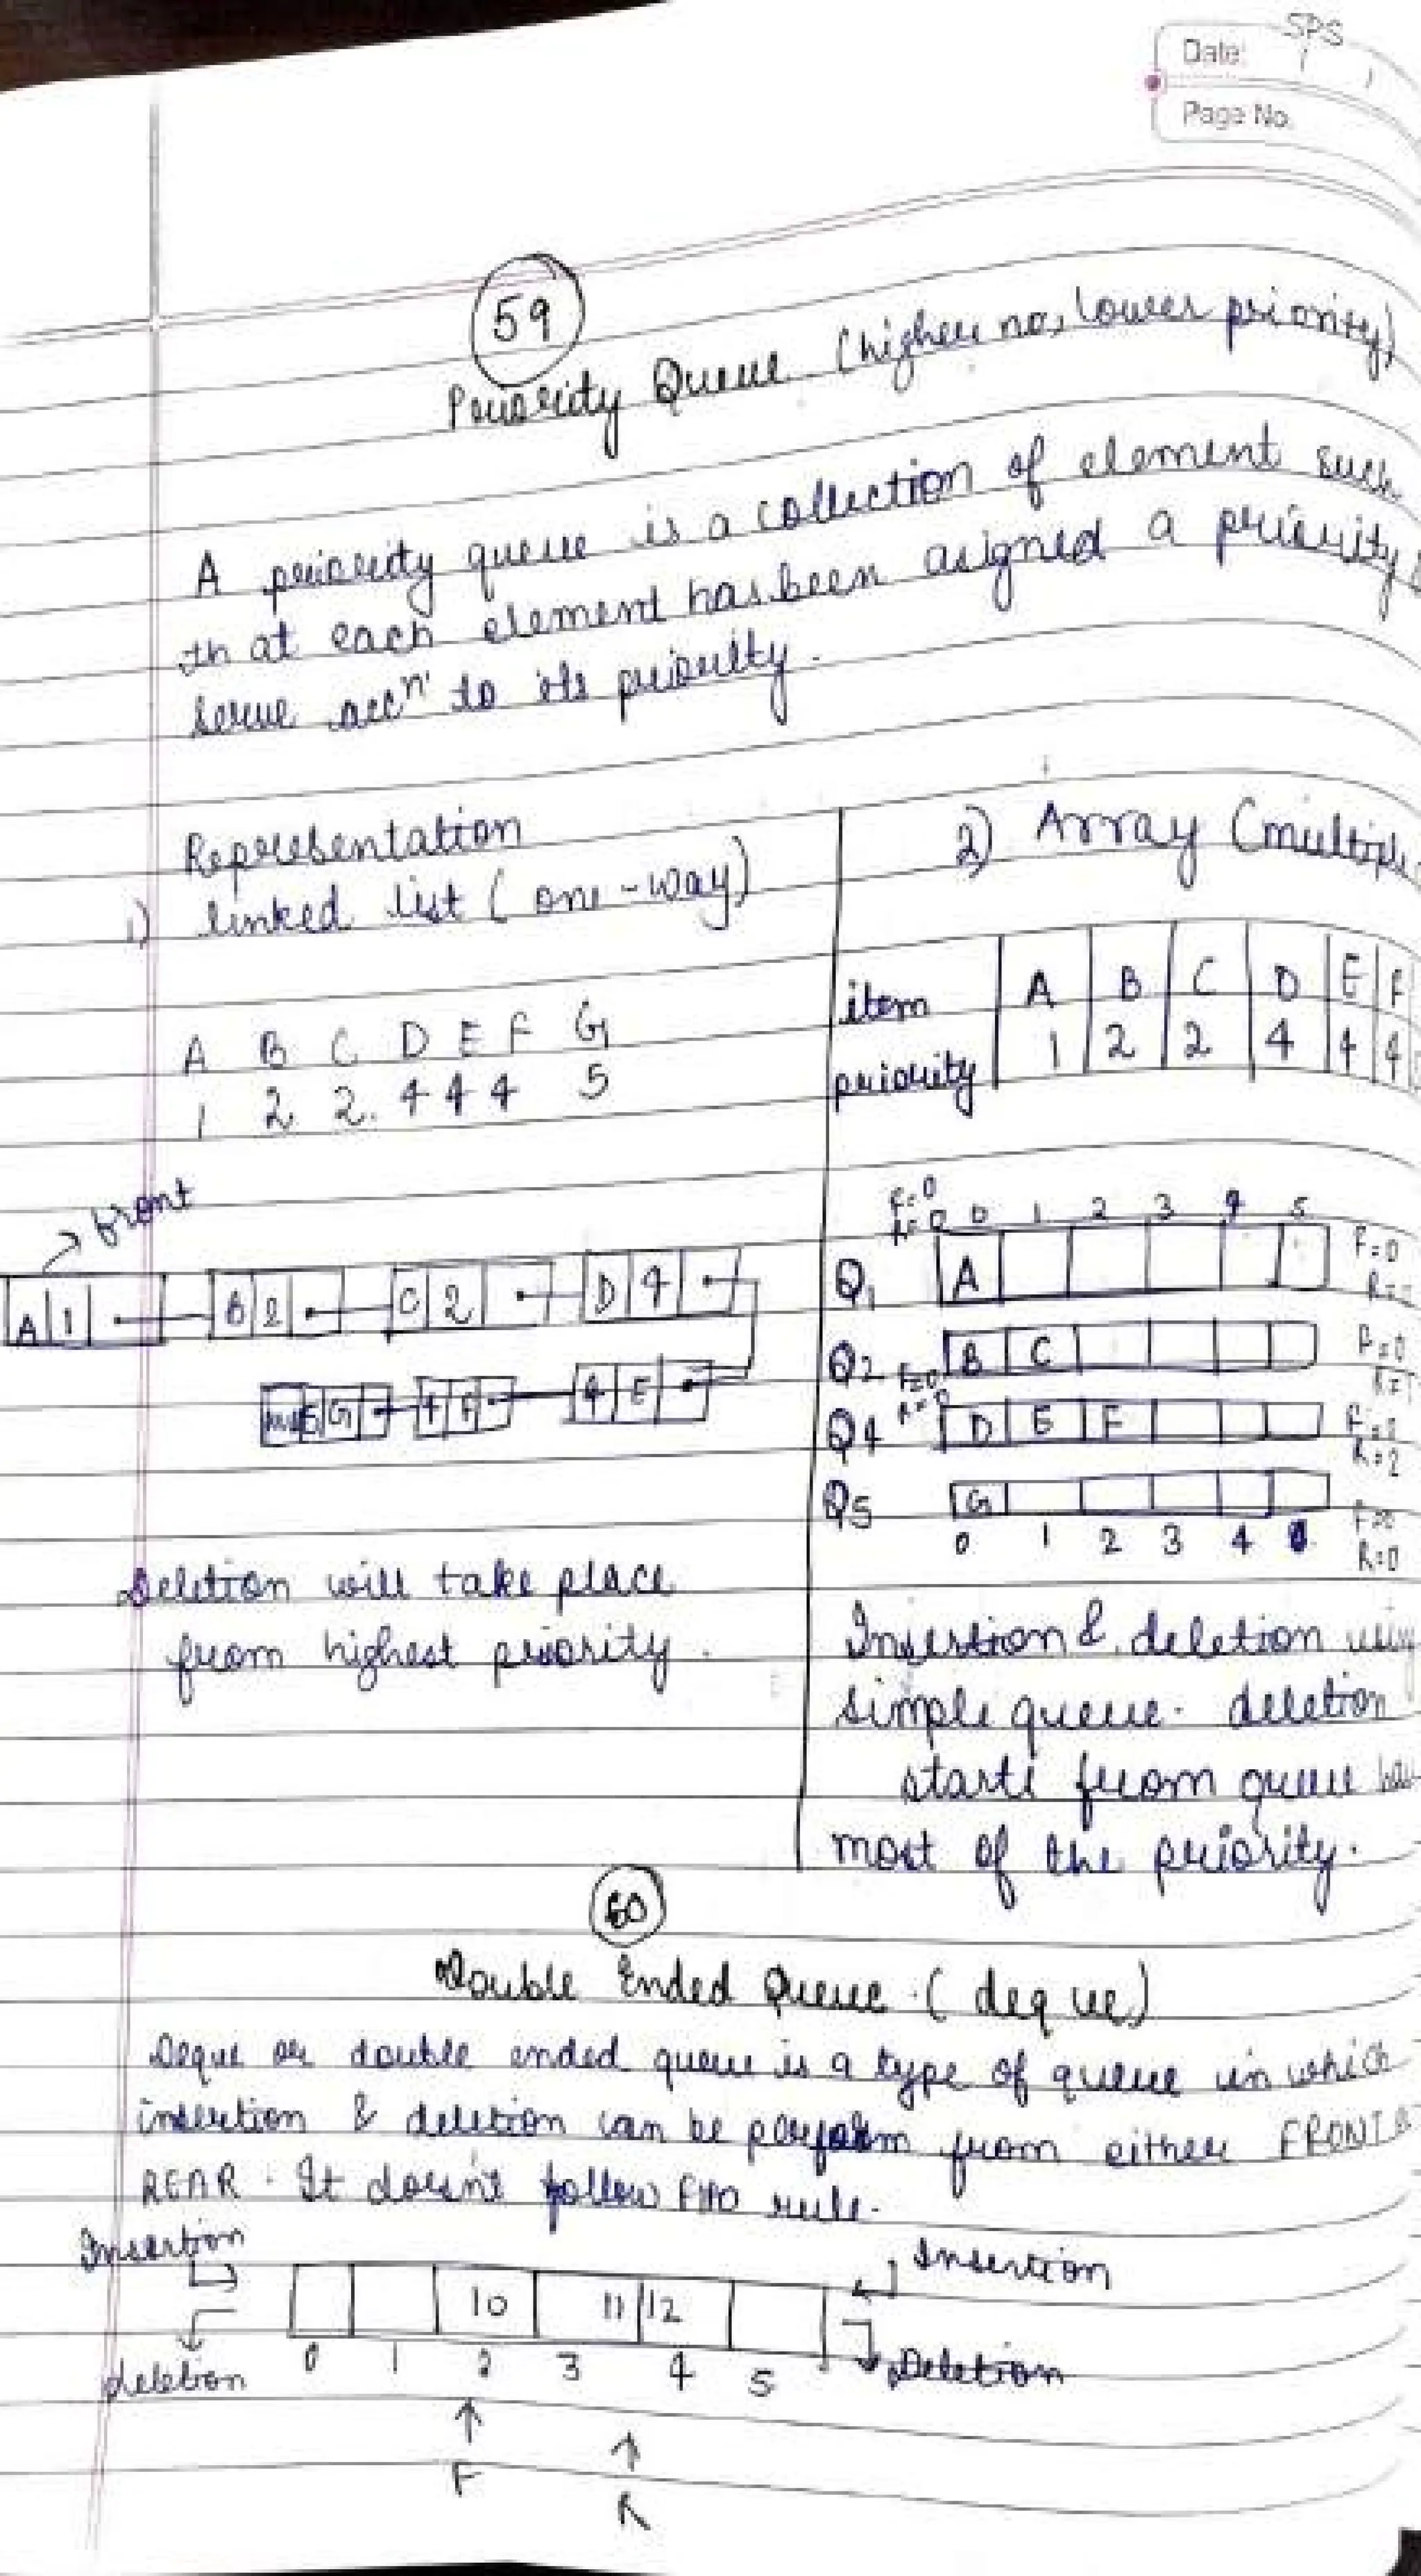 SPS
Date: / /
Page No.
59
Priority Queue (higher no, lower priority)
A priority queue is a collection of element such
that each element has been asigned a priority &
serve accn to its priority.
Representation
1) linked list (one-way)
A B C D E F G
1 2 2. 4 4 4 5
→ front
A 1 B 2 C 2 D 4
G 4 F 4 E
Deletion will take place
from highest priority.
2) Array (multiple
item A B C D E F
priority 1 2 2 4 4 4
F=0
R=0 0 1 2 3 4 5
Q1 A F=0
R=
Q2 B C F=0
F=0 R=
R=0
Q4 D E F F=0
R=2
Q5 G F=0
0 1 2 3 4 R=0
Insertion & deletion using
simple queue. deletion
starts from queue
most of the priority.
60
Double Ended Queue (deque)
Deque or double ended queue is a type of queue in which
insertion & deletion can be perform from either FRONT
REAR. It doesn't follow FIFO rule.
Insertion Insertion
10 11 12
deletion 0 1 2 3 4 5 Deletion
↑ ↑
F R